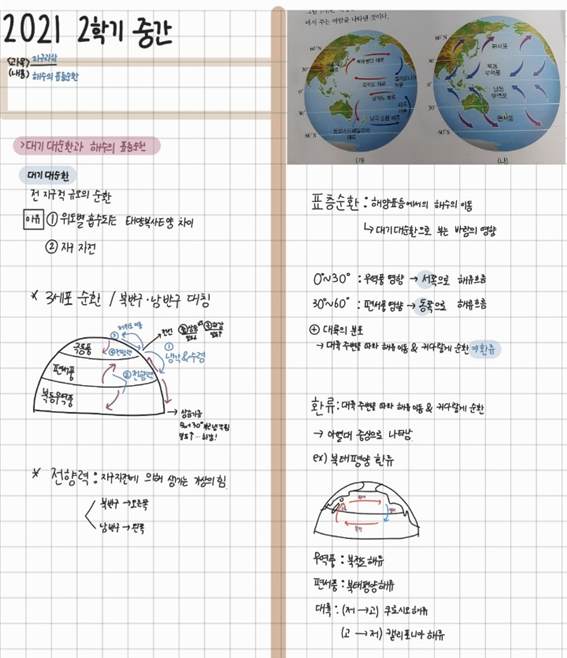 2021 2학기 중간
(과목) 지구과학
(내용) 해수의 표층순환
>대기 대순환과 해수의 표층순환
대기 대순환
전 지구적 규모의 순환
이유 ① 위도별 흡수되는 태양복사E양 차이
② 지구 자전
* 3세포 순환 / 북반구·남반구 대칭
극동풍
편서풍
북동무역풍
① 냉각&수렴
② 전향력
* 전향력 : 지구자전에 의해 생기는 가상의 힘
북반구→오른쪽
남반구→왼쪽
60°N
30°
0°
30°
60°S
(가)
60°N
30°
0°
30°
60°S
편서풍
북동 무역풍
남동 무역풍
편서풍
(나)
표층순환 : 해양표층에서의 해수의 이동
↳ 대기대순환으로 부는 바람의 영향
0°~30° : 무역풍 영향 → 서쪽으로 해류흐름
30°~60° : 편서풍 영향 → 동쪽으로 해류흐름
⊕ 대륙의 분포
→ 대륙 주변을 따라 해류 이동 & 커다랗게 순환
환류 : 대륙 주변을 따라 해류 이동 & 커다랗게 순환
→ 아열대 중심으로 나타남
ex) 북태평양 환류
무역풍 : 북적도해류
편서풍 : 북태평양해류
대륙 : (저→고) 쿠로시오해류
(고→저) 캘리포니아 해류